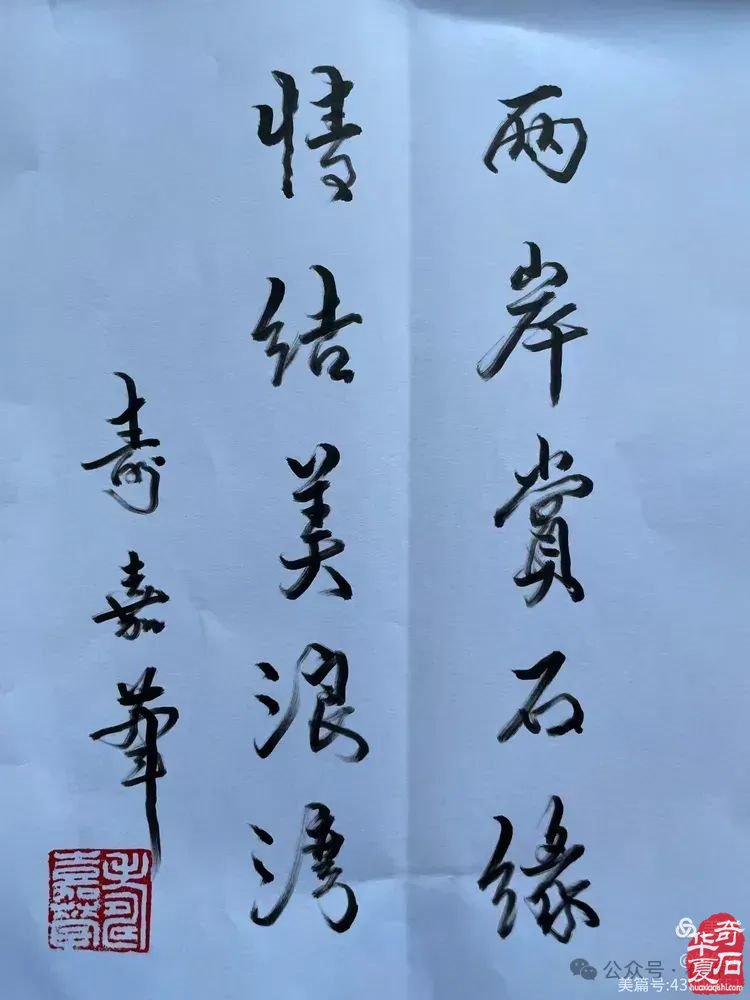 两岸赏石缘
情结美浪湾
寿嘉华
公众号·
美篇号:43
华夏奇石
huaxiaqishi.com